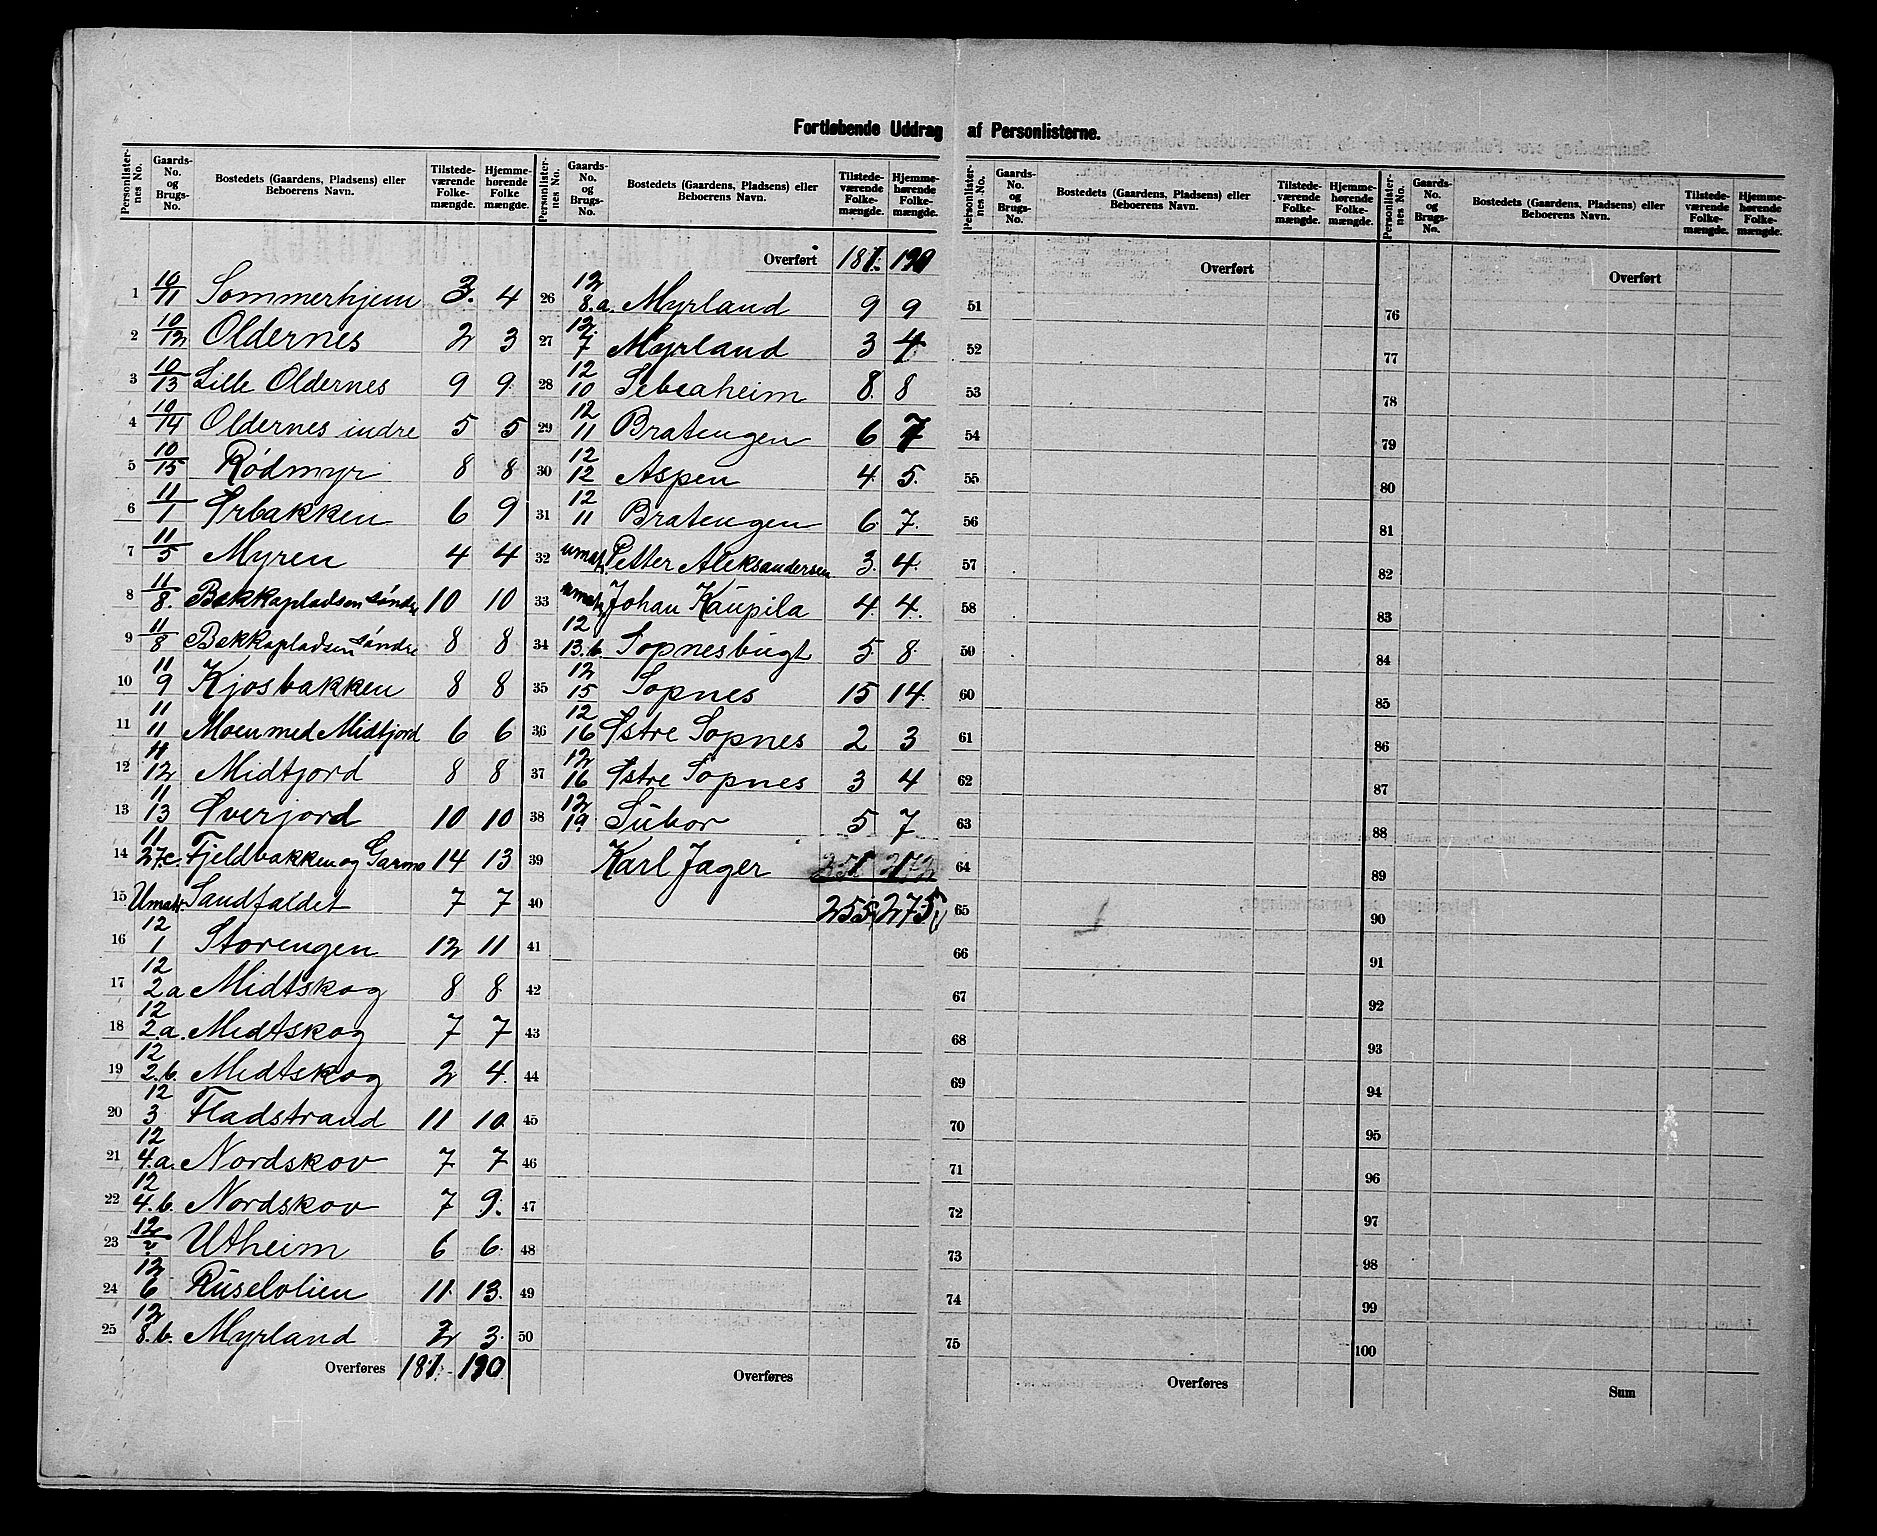 Fortløbende Uddrag af Personlisterne.
Personlisternes No. Gaards-No. og Brugs-No. Bostedets (Gaardens, Pladsens) eller Beboerens Navn. Tilstedeværende Folkemængde. Hjemmehørende Folkemængde.
1 10/11 Sommerhjem 3. 4
2 10/12 Oldernes 2 3
3 10/13 Lille Oldernes 9 9
4 10/14 Oldernes indre 5 5
5 10/15 Rødmyr 8 8
6 11/1 Ørbakken 6 9
7 11/5 Myren 4 4
8 11/8. Bakkapladsen søndre 10 10
9 11/8 Bekkapladsen søndre 8 8
10 11/9 Kjosbakken 8 8
11 11/11 Moen med Midtfjord 6 6
12 11/12 Midtfjord 8 8
13 11/13 Øverjord 10 10
14 11/27c. Fjeldbakken og Garmo 14 13
15 Umatr. Sandfaldet 7 7
16 12/1 Storengen 12 11
17 12/2a Midtskog 8 8
18 12/2.a. Midtskog 7 7
19 12/2.b. Midtskog 2 4.
20 12/3 Fladstrand 11 10
21 12/4.a. Nordskov 7 7
22 12/4.b. Nordskov 7 9.
23 12/ Utheim 6 6.
24 12/6 Ruselvlien 11. 13.
25 12/8.b. Myrland 2 3.
Overføres 181. 190
Personlisternes No. Gaards-No. og Brugs-No. Bostedets (Gaardens, Pladsens) eller Beboerens Navn. Tilstedeværende Folkemængde. Hjemmehørende Folkemængde.
Overført 181. 190
26 12/8.a. Myrland 9 9
27 12/7 Myrland 3 4
28 12/10 Sebeaheim 8. 8
29 12/11 Bratengen 6 7
30 12/12 Aspen 4. 5.
31 12/11 Bratengen 6. 7.
32 umatr. Petter Aleksandersen 3. 4.
33 umatr. Johan Kaupila 4. 4.
34 12/13.b. Sopnesbugt 5 8
35 12/15 Sopnes 15 14.
36 12/16 Østre Sopnes 2 3
37 12/16 Østre Sopnes 3 4
38 12/19 Subor 5 7
39 Karl Jager 251 272
40 255. 275
41
42
43
44
45
46
47
48
49
50
Overføres
Personlisternes No. Gaards-No. og Brugs-No. Bostedets (Gaardens, Pladsens) eller Beboerens Navn. Tilstedeværende Folkemængde. Hjemmehørende Folkemængde.
Overført
51
52
53
54
55
56
57
58
59
60
61
62
63
64
65
66
67
68
69
70
71
72
73
74
75
Overføres
Personlisternes No. Gaards-No. og Brugs-No. Bostedets (Gaardens, Pladsens) eller Beboerens Navn. Tilstedeværende Folkemængde. Hjemmehørende Folkemængde.
Overført
76
77
78
79
80
81
82
83
84
85
86
87
88
89
90
91
92
93
94
95
96
97
98
99
100
Sum